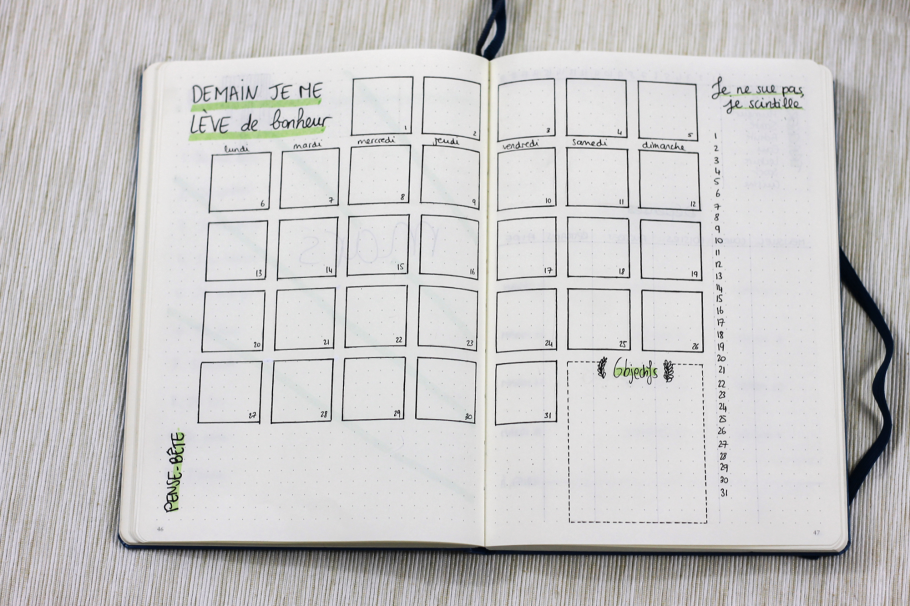 DEMAIN JE ME
LÈVE de bonheur
1 2 3 4 5
lundi mardi mercredi jeudi vendredi samedi dimanche
6 7 8 9 10 11 12
13 14 15 16 17 18 19
20 21 22 23 24 25 26
27 28 29 30 31
Objectifs
PENSE-BÊTE
44
Je ne sue pas,
je scintille
1
2
3
4
5
6
7
8
9
10
11
12
13
14
15
16
17
18
19
20
21
22
23
24
25
26
27
28
29
30
31
45